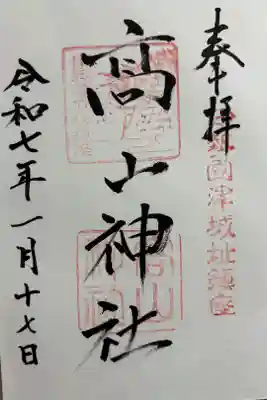 奉拝
伊勢国津城址鎮座
髙山神社
令和七年一月十七日